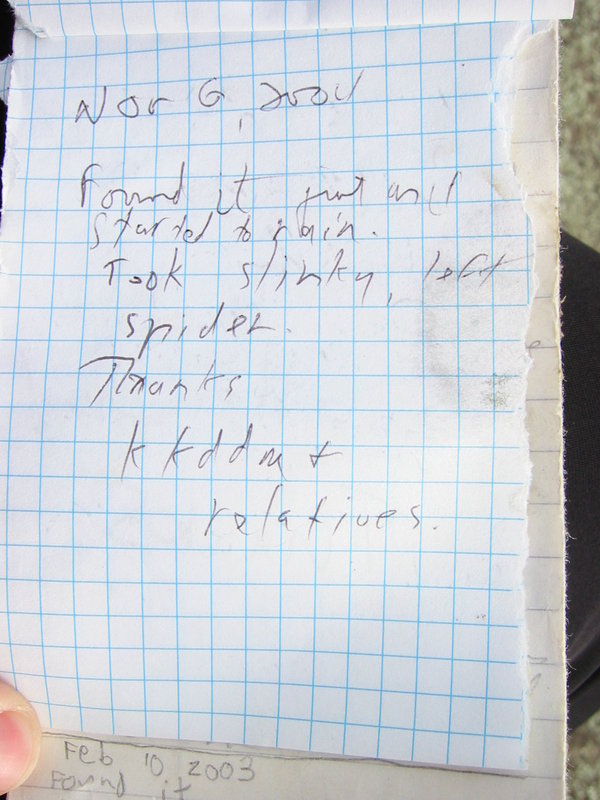 Nov 6, 2004
Found it just and
started to rain.
Took slinky, left
spider.
Thanks
kkddm +
relatives.
Feb 10, 2003
Found it